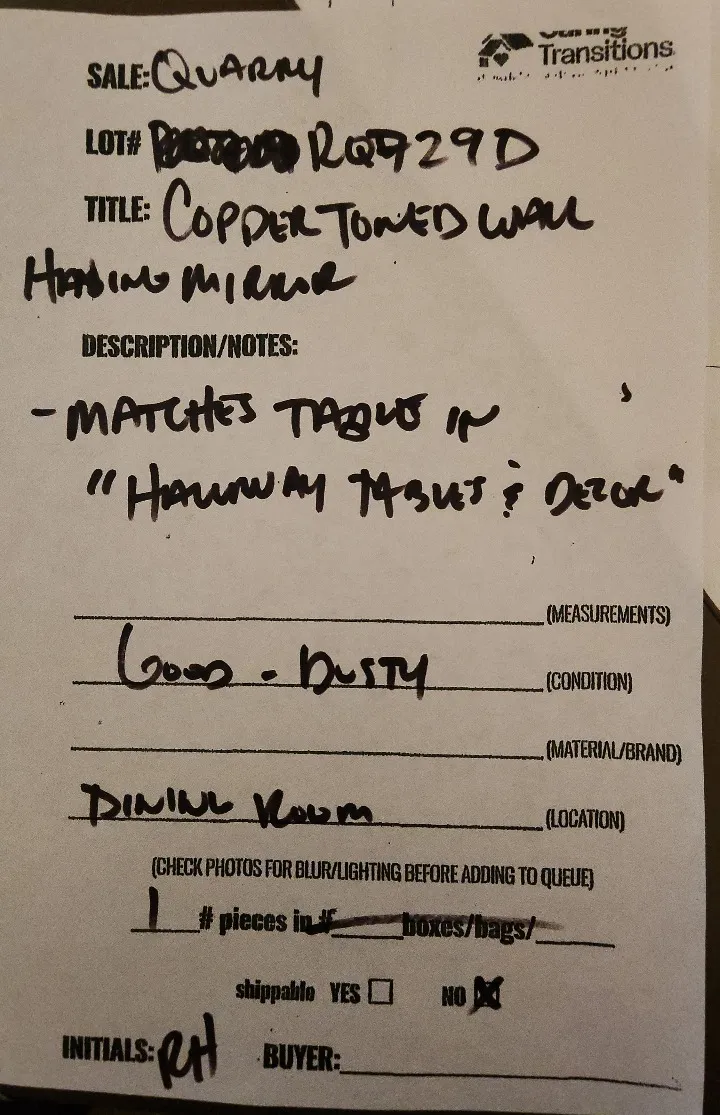 Caring
Transitions
SALE: QUARRY
LOT# RQ729D
TITLE: COPPER TONED WALL
HANGING MIRROR
DESCRIPTION/NOTES:
- MATCHES TABLE IN
"HALLWAY TABLES & DECOR"
(MEASUREMENTS)
GOOD - DUSTY (CONDITION)
(MATERIAL/BRAND)
DINING ROOM (LOCATION)
(CHECK PHOTOS FOR BLUR/LIGHTING BEFORE ADDING TO QUEUE)
1 # pieces in # boxes/bags/
shippable YES NO
INITIALS: RH BUYER: